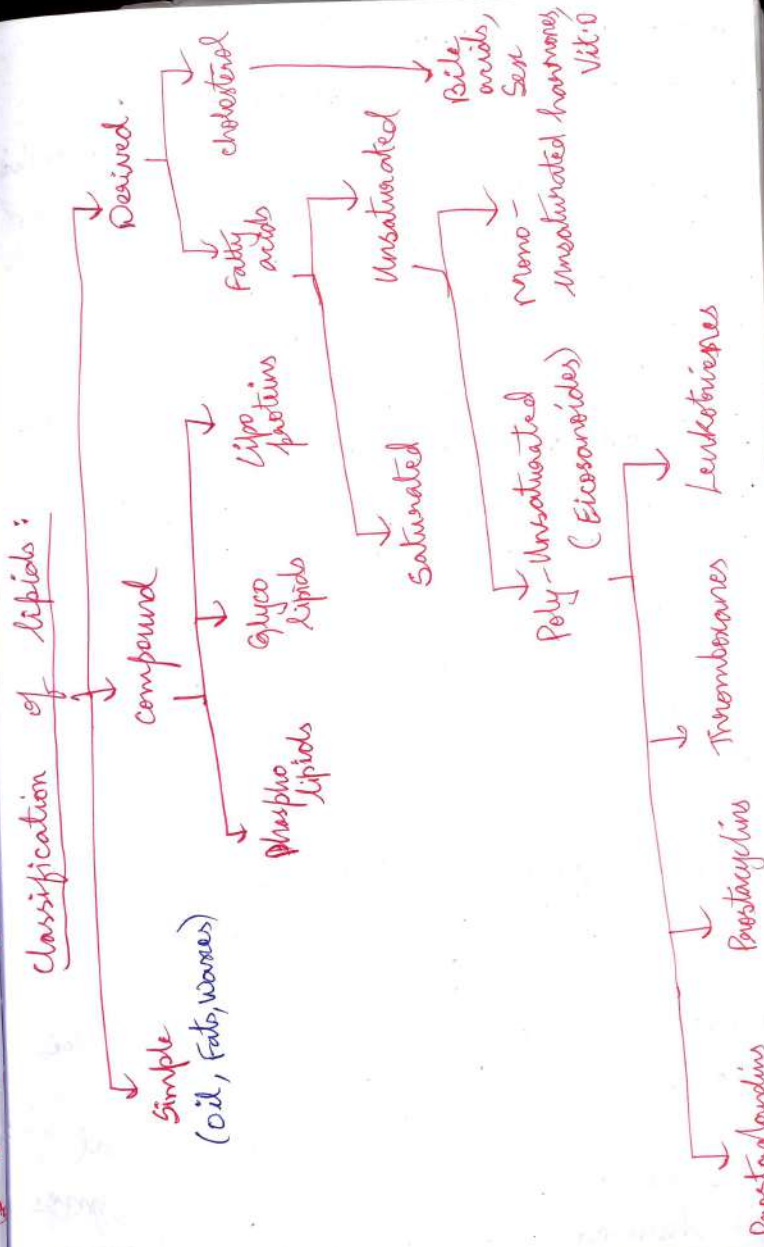 Classification of lipids:
Simple
(Oil, Fats, Waxes)
Compound
Derived.
Phospho
lipids
Glyco
lipids
Lipo
proteins
Fatty
acids
Cholesterol
Saturated
Unsaturated
Bile
acids,
Sex
hormones,
Vit:D
Poly-Unsaturated
(Eicosanoides)
Mono-
Unsaturated
Prostaglandins
Prostacyclins
Thromboxanes
Leukotrienes